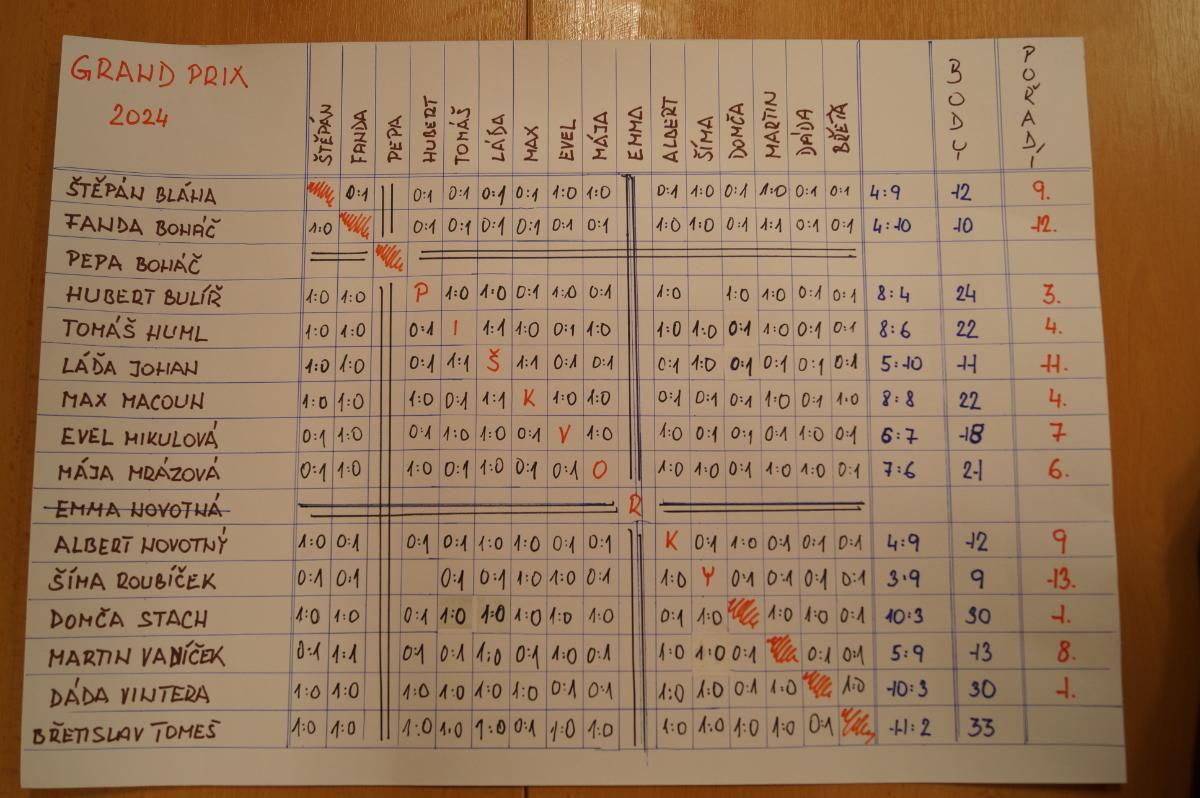 GRAND PRIX
2024
ŠTĚPÁN FANDA PEPA HUBERT TOMÁŠ LÁĎA MAX EVEL MÁJA EMMA ALBERT ŠÍMA DOMČA MARTIN DÁĎA BŘEŤA BODY POŘADÍ
ŠTĚPÁN BLÁHA 0:1 0:1 0:1 0:1 0:1 1:0 1:0 0:1 1:0 0:1 1:0 0:1 0:1 4:9 12 9.
FANDA BOHÁČ 1:0 0:1 0:1 0:1 0:1 0:1 0:1 1:0 1:0 0:1 1:1 0:1 0:1 4:10 10 12.
PEPA BOHÁČ
HUBERT BULÍŘ 1:0 1:0 P 1:0 1:0 0:1 1:0 0:1 1:0 1:0 1:0 0:1 0:1 8:4 24 3.
TOMÁŠ HUML 1:0 1:0 0:1 I 1:1 1:0 0:1 1:0 1:0 1:0 0:1 1:0 0:1 0:1 8:6 22 4.
LÁĎA JOHAN 1:0 1:0 0:1 1:1 Š 1:1 0:1 0:1 0:1 1:0 0:1 0:1 0:1 0:1 5:10 11 11.
MAX MACOUN 1:0 1:0 1:0 0:1 1:1 K 1:0 1:0 0:1 0:1 0:1 1:0 0:1 1:0 8:8 22 4.
EVEL MIKULOVÁ 0:1 1:0 0:1 1:0 1:0 0:1 V 1:0 1:0 0:1 0:1 0:1 1:0 0:1 6:7 18 7
MÁJA MRÁZOVÁ 0:1 1:0 1:0 0:1 1:0 0:1 0:1 O 1:0 1:0 0:1 1:0 1:0 0:1 7:6 21 6.
EMMA NOVOTNÁ R
ALBERT NOVOTNÝ 1:0 0:1 0:1 0:1 1:0 1:0 0:1 0:1 K 0:1 1:0 0:1 0:1 0:1 4:9 12 9
ŠÍMA ROUBÍČEK 0:1 0:1 0:1 0:1 1:0 1:0 0:1 1:0 Y 0:1 0:1 0:1 0:1 3:9 9 13.
DOMČA STACH 1:0 1:0 0:1 1:0 1:0 1:0 1:0 1:0 0:1 1:0 1:0 1:0 0:1 10:3 30 1.
MARTIN VANÍČEK 0:1 1:1 0:1 0:1 1:0 0:1 1:0 0:1 1:0 1:0 0:1 0:1 0:1 5:9 13 8.
DÁĎA VINTERA 1:0 1:0 1:0 1:0 1:0 1:0 0:1 0:1 1:0 1:0 0:1 1:0 1:0 10:3 30 1.
BŘETISLAV TOMEŠ 1:0 1:0 1:0 1:0 1:0 0:1 1:0 1:0 1:0 1:0 1:0 1:0 0:1 11:2 33